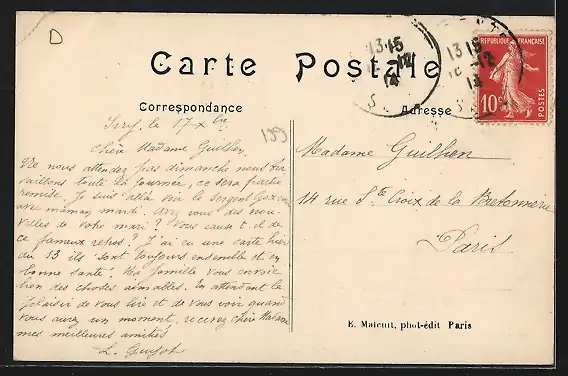 D
Carte Postale
Correspondance
Adresse
13 15
12
14
S
13 15
12
14
REPUBLIQUE FRANÇAISE
10c
POSTES
199
Ivry, le 17 Xbre
Chère Madame Guilhen,
Ne nous attendez pas dimanche nous tra
vaillons toute la journée, ce sera partie
remise. Je suis allé voir le Sergent
avec maman mardi. Avez vous des nou
velles de votre mari ? Vous cause t-il de
ce fameux repos ? J'ai eu une carte hier
du 13 ils sont toujours ensemble et en
bonne santé. Ma famille vous envoie
bien des choses aimables. En attendant le
plaisir de vous lire et de vous voir quand
vous aurez un moment, recevez chère Madame
mes meilleures amitiés
L. Guyot
Madame Guilhen
14 rue Ste Croix de la Bretonnerie
Paris
E. Malcuit, phot-édit Paris